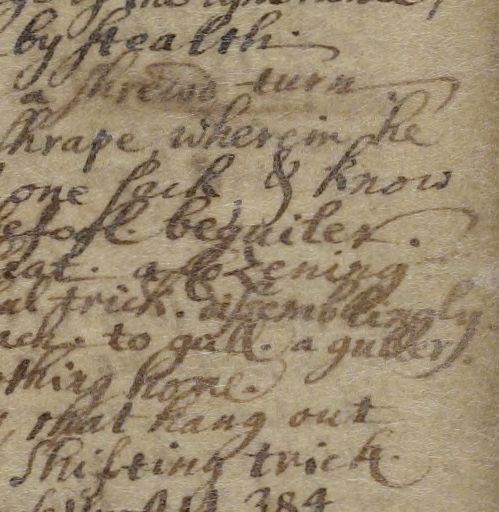 by stealth.
a shrewd turn
shrape, wherein he
one sack, & know
beguiler.
a cozening
trick. dissemblingly
to gull. a guller.
thing home.
that hang out
shifting trick.
384